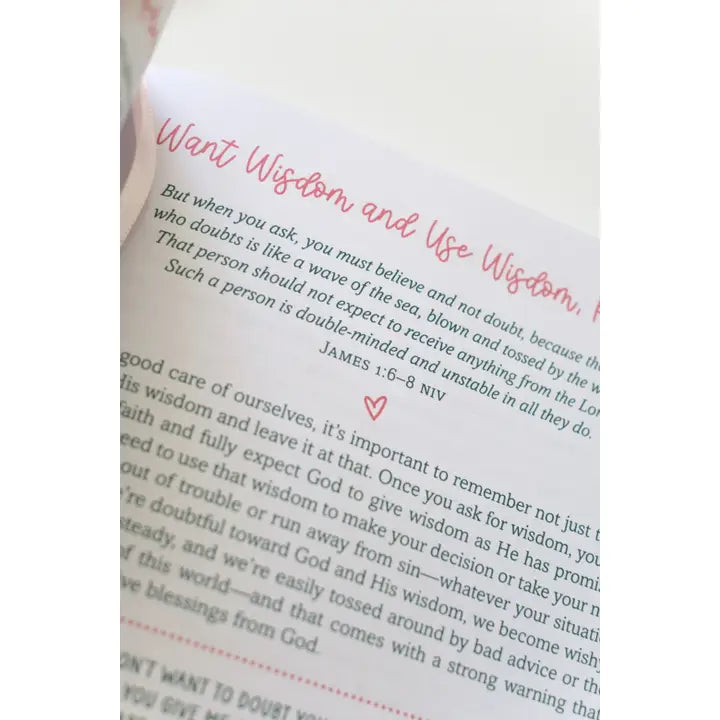 Want Wisdom and Use Wisdom,
But when you ask, you must believe and not doubt, because th
who doubts is like a wave of the sea, blown and tossed by the w
That person should not expect to receive anything from the Lor
Such a person is double-minded and unstable in all they do.
JAMES 1:6–8 NIV
good care of ourselves, it's important to remember not just t
His wisdom and leave it at that. Once you ask for wisdom, you
faith and fully expect God to give wisdom as He has promi
eed to use that wisdom to make your decision or take your n
out of trouble or run away from sin—whatever your situati
're doubtful toward God and His wisdom, we become wishy
steady, and we're easily tossed around by bad advice or the
of this world—and that comes with a strong warning that
ve blessings from God.
ON'T WANT TO DOUBT YOU
YOU GIVE ME